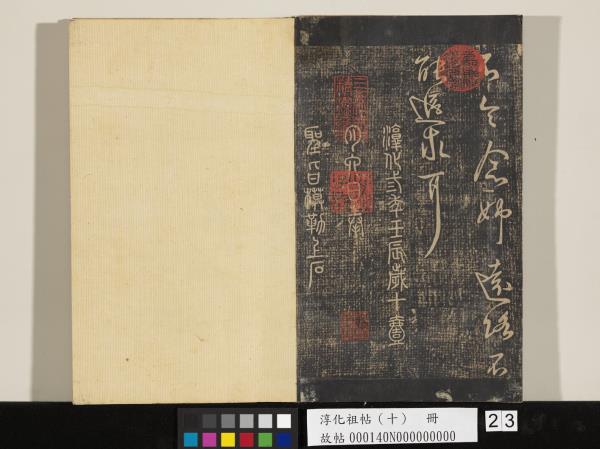 念姉遠路不
能
淳化三年壬辰歲十一
月六日奉
聖旨模勒上石
淳化祖帖(十) 冊
故帖000140N000000000
23